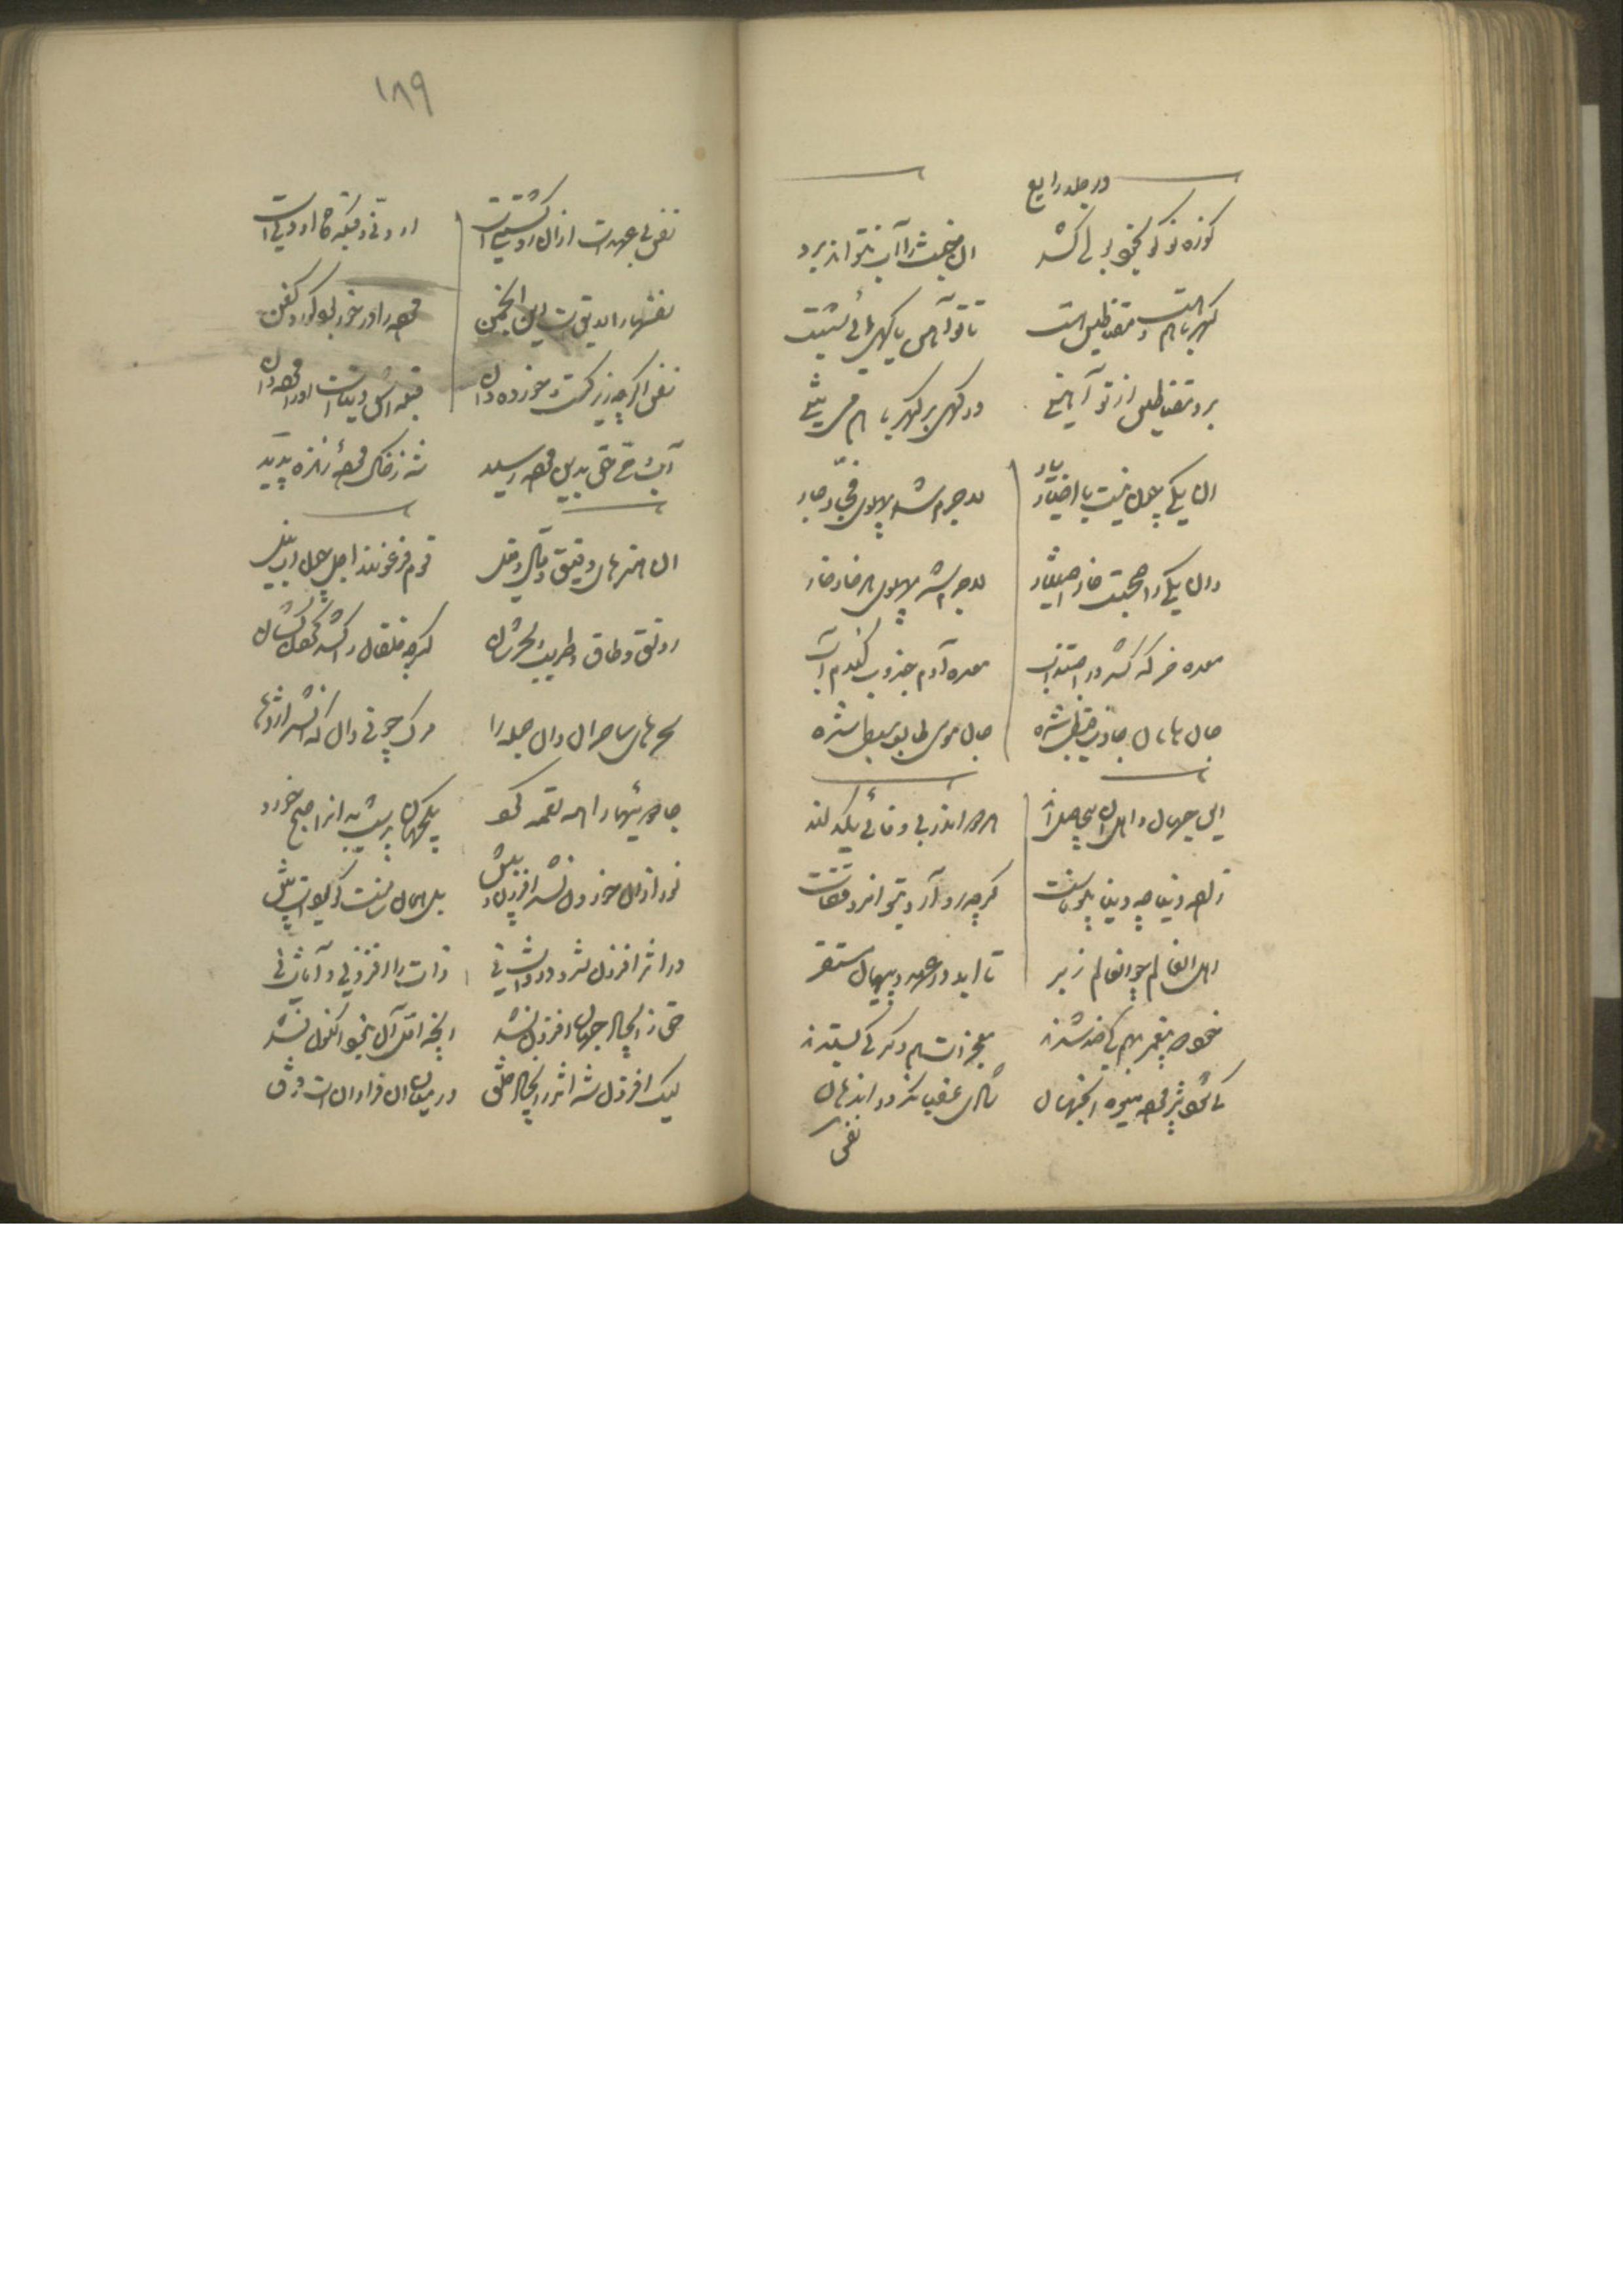 در جلد رابع
کوزه نو کو بخود بولی کشد آن خبث را آب نتواند برید
کهربا هست و مغناطیس هست تا تو آهن یا کهی آئی بشست
برد مغناطیس ار تو آهنی ور کهی بر کهربا هم می تنی
آن یکی چون نیست با اخیار یار لاجرم شد پهلوی فجار جار
وان یکی را صحبت خار اختیار لاجرم شد پهلوی هر خار خار
معده خر که کشد در اجتذاب معده آدم جذوب گندم آب
جان هامان جاذب قبطی شده جان موسی طالب سبطی شده
این جهان و اهل آن بیحاصل اند هر دو اندر بی وفائی یکدلند
زاده دنیا چو دنیا بی وفاست گرچه رو آرد بتو آن رو قفاست
اهل آن عالم چو آن عالم ز بر تا ابد در عهد و پیمان مستقر
خود دو پیغمبر بهم کی ضد شدند معجزات از هم دگر کی بستدند
کی شود پژمرده میوه آنجهان شادی عقلی نگردد اندهان
نفس
۱۸۹
نفس بی عهدست ازان رو کشتنی است او دنی و قبله گاه او دنی است
نفسها را لایق است این انجمن مرده را درخور بود گور و کفن
نفس اگرچه زیرکست و خورده دان قبله اش دنیاست او را مرده دان
آب وحی حق بدین مرده رسید شد ز خاک مرده زنده پدید
آن هنرهای دقیق و قال و قیل قوم فرعونند اجل چون آب نیل
رونق و طاق و طرنب و سحرشان گرچه خلقان را کشد گردن کشان
سحرهای ساحران دان جمله را مرگ چوبی دان که آن شد اژدها
جادوئیها را همه لقمه کرد یک جهان پر شب بد آنرا صبح خورد
نور از آن خوردن نشد افزون و بیش بل همان سانست کو بودست پیش
در اثر افزون شد و در ذات نی ذات را افزونی و آفات نی
حق ز ایجاد جهان افزون نشد آنچه اول آن نبود اکنون نشد
لیک افزون شد اثر ز ایجاد خلق در میان این دو افزونیست فرق